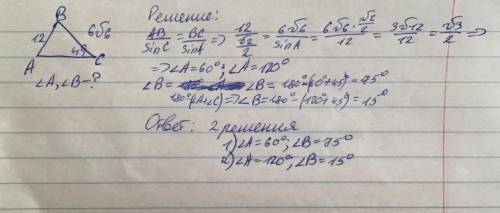 Решение:
B
12
6√6
A
45
C
∠A, ∠B - ?
AB/sinC = BC/sinA ⇒ 12/(√2/2) = 6√6/sinA = (6√6·√2/2)/12 = 3√12/12 = √3/2 ⇒
⇒ ∠A=60°; ∠A=120°
∠B= ∠B= 180°-(60°+45°)=75°
180°-(∠A+∠C) ⇒ ∠B=180°-(120°+45°)=15°
Ответ: 2 решения
1) ∠A=60°; ∠B=75°
2) ∠A=120°; ∠B=15°